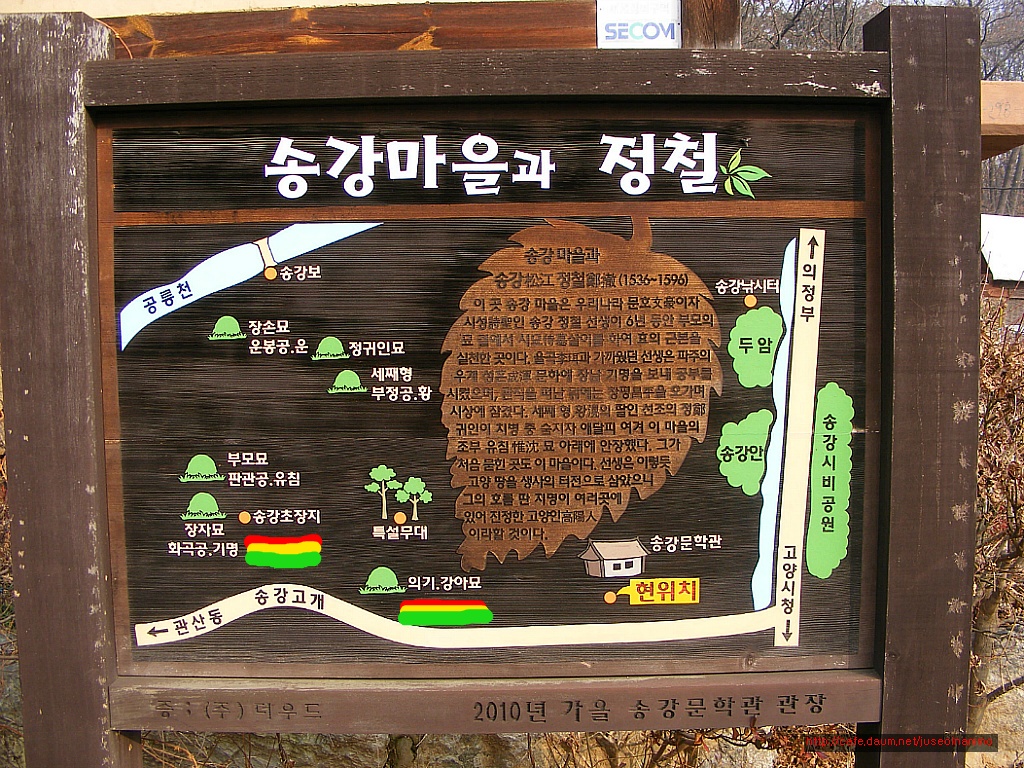 SECOM
송강마을과 정철
송강보
공릉천
장손묘
운봉공.운
정귀인묘
세째형
부정공.황
부모묘
판관공.유침
장자묘
화곡공.기명
송강초장지
특설무대
의기.강아묘
송강고개
← 관산동
송강마을과
송강松江 정철鄭澈 (1536~1596)
이 곳 송강 마을은 우리나라 문호文豪이자
시성詩聖인 송강 정철 선생이 6년 동안 부모의
묘 곁에서 시묘살이를 하여 효의 근본을
실천한 곳이다. 율곡 가까웠던 선생은 파주의
우계 문하에 장남 기명을 보내 공부를
시켰으며,
시상에 잠겼다. 세째 형 황滉의 딸인 선조의 정鄭
귀인이 지병 중 숨지자 애달피 여겨 이 마을의
조부 유침惟沈 묘 아래에 안장했다. 그가
처음 묻힌 곳도 이 마을이다. 선생은 이렇듯
고양 땅을 생사의 터전으로 삼았으니
그의 호를 딴 지명이 여러곳에
있어 진정한 고양인高陽人
이라할 것이다.
송강문학관
현위치
송강낚시터
두암
송강안
↑ 의정부
고양시청 ↓
송강시비공원
증 : (주) 더우드
2010년 가을 송강문학관 관장